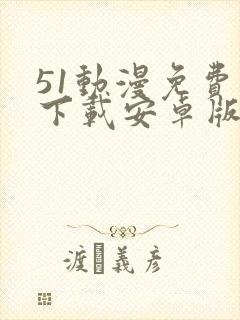 51動漫免費
下載安卓版
渡 義彦